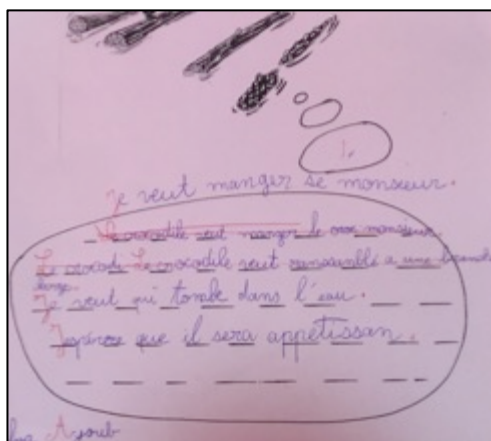 Je veut manger se monsieur.
Le crocodile veut manger le monsieur
Le crocodi Le crocodile veut ressemblé a une
large.
Je veut qui tombe dans l'eau.
J'espérere que il sera appétissan.
Ayoub